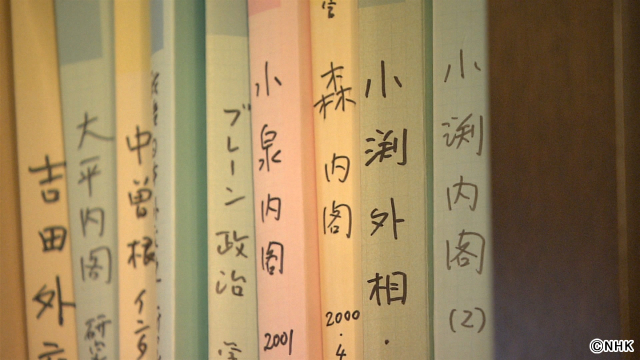 小渕内閣
(2)
小渕外相・
森内閣
2000・4
小泉内閣
2001
ブレーン政治
中曽根インタ
大平内閣 研究
吉田外交
©NHK